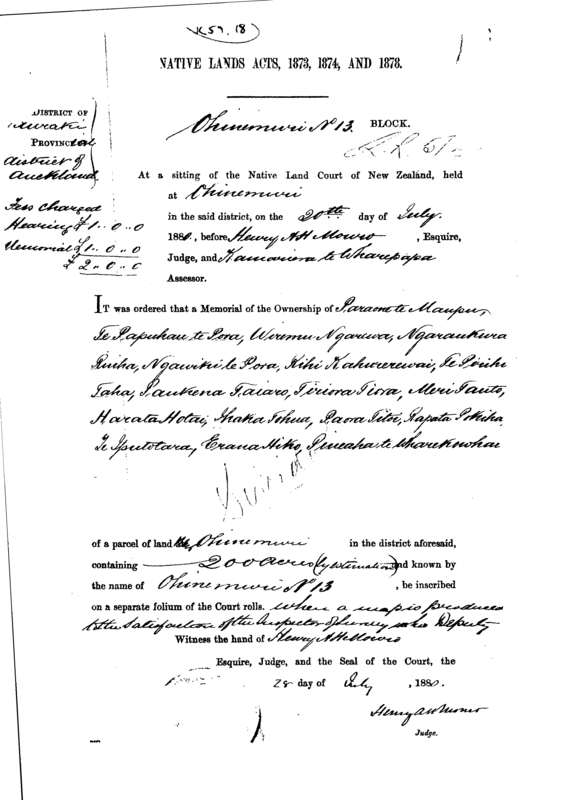 NATIVE LANDS ACTS, 1873, 1874, AND 1878.
DISTRICT OF
Hauraki
PROVINCIAL
district of
Auckland
Fees charged
Hearing £1..0..0
Memorial £1..0..0
£2..0..0
Ohinemuri No 13 BLOCK.
At a sitting of the Native Land Court of New Zealand, held
at Ohinemuri
in the said district, on the 20th day of July
1880, before Henry AH Monro, Esquire,
Judge, and Kamariera te Wharepapa
Assessor.
IT was ordered that a Memorial of the Ownership of Paraone te Maupu,
Te Papuhau te Pora, Wiremu Ngarewa, Ngaraukura
Ruiha, Ngawiki te Pora, Kihi Kahurerewai, Te Piriki
Taha, Paukena Taiaro, Tiriora Tiora, Meri Tauto,
Harata Hotai, Ihaka Tohua, Paora Titoi, Rapata Pokiha
Te Iputotara, Erana Hiko, Peneaha te Wharekowhai
of a parcel of land at Ohinemuri in the district aforesaid,
containing 200 acres (by estimation) and known by
the name of Ohinemuri No 13, be inscribed
on a separate folium of the Court rolls. when a map is produced
to the satisfaction of the Inspector of Surveys or his Deputy
Witness the hand of Henry AH Monro
Esquire, Judge, and the Seal of the Court, the
28 day of July, 1880.
Henry AH Monro
Judge.